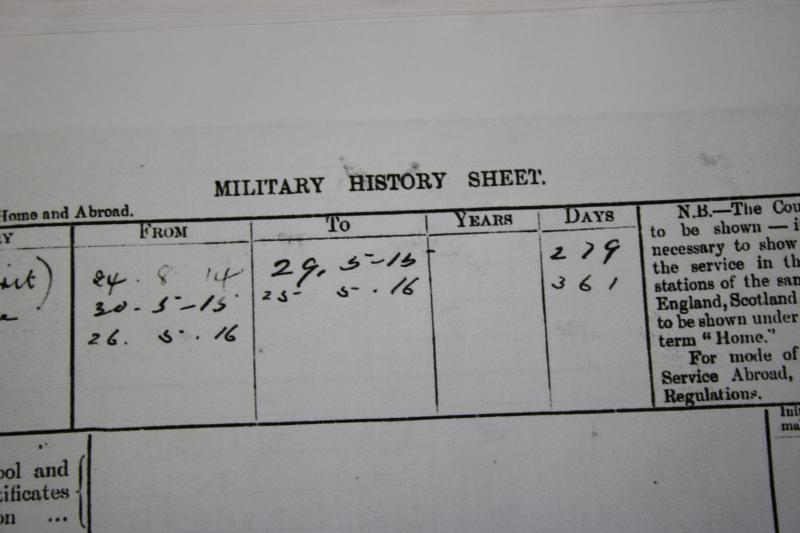 MILITARY HISTORY SHEET.
Home and Abroad.
RY FROM TO YEARS DAYS
24 . 8 14 29. 5-15 279
30-5-15 25 5.16 361
26. 5.16
N.B.—The Cou
to be shown — i
necessary to show
the service in th
stations of the san
England, Scotland
to be shown under
term "Home."
For mode of
Service Abroad,
Regulations.
ool and
tificates
on ...
Init
ma